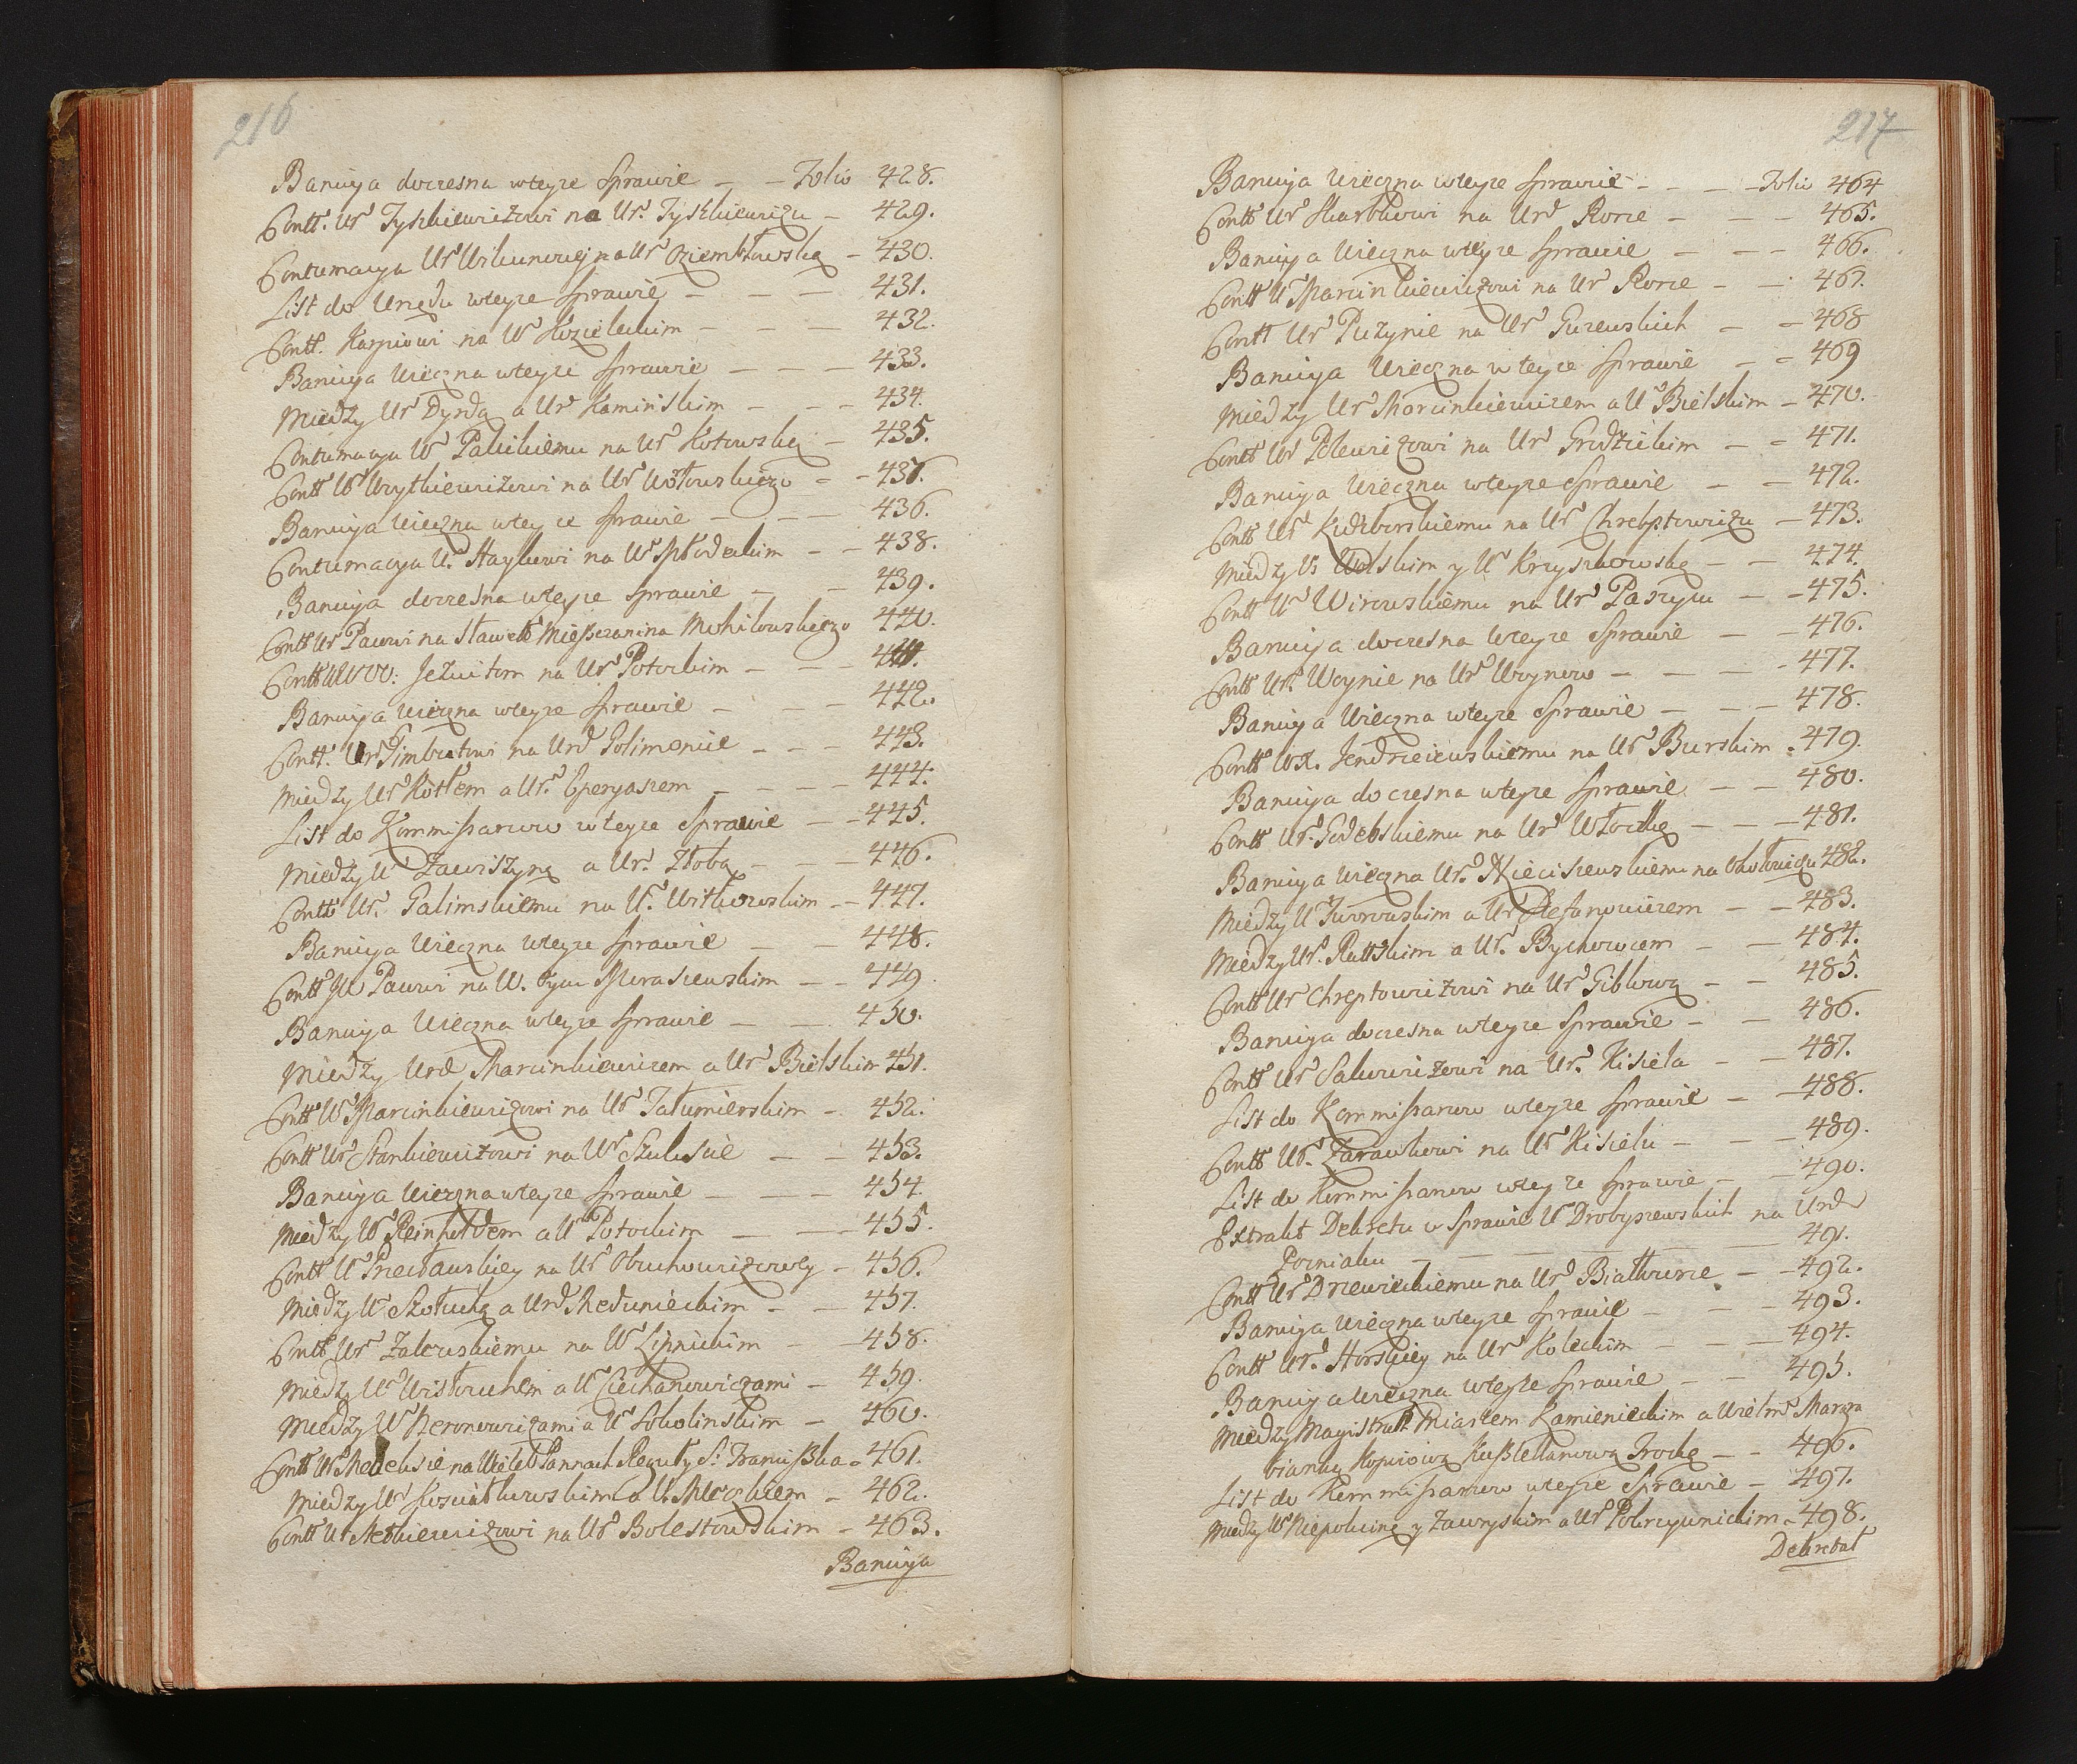 216
Banicya doczesna wteyze Sprawie – – Folio 428.
Contt. Ur Tyszkiewiczowi na Ur. Tyszkiewiczu – 429.
Contumacya Ur Wilunowey na Ur Oziembłowską – 430.
List do Urzędu wteyze Sprawie – – – 431.
Contt. Karpiowi na W Kozieleckim – – – 432.
Banicya wieczna wteyze Sprawie – – – 433.
Miedzy Ur Dyrdą a Ur Kaminskim – – – 434.
Contumacya W Palickiemu na Ur Kotowską – 435.
Contt W Woytkiewiczowi na Ur Wołowskiego – – 437.
Banicya wieczna wteyze Sprawie – – – 436.
Contumacya U. Haykowi na W Młodeckim – – 438.
Banicya doczesna wteyze Sprawie – – 439.
Contt Ur Pacowi na Sławet Mieszczanina Mohilowskiego 440.
Contt WW OO: Jezuitom na Ur Potockim – – – 441.
Banicya wieczna wteyze Sprawie – – – 442.
Contt. Ur Gimbutowi na Urd Polimoncie – – – 443.
Miedzy Ur Kotłem a Ur. Eperyaszem – – – – 444.
List do Kommissarzow wteyze Sprawie – – 445.
Miedzy W Zawiszyną a Ur. Złobą – – – 446.
Contt Ur. Galimskiemu na U. Witkowskim – – 447.
Banicya wieczna wteyze Sprawie – – 448.
Contt JW Pacowi na W. Oycu Muraszewskim – – 449.
Banicya wieczna wteyze Sprawie – – 450.
Miedzy Urd Marcinkiewiczem a Ur Bielskim 451.
Contt W Marcinkiewiczowi na W Tatumierskim – 452.
Contt Ur Stankiewiczowi na W Szukscie – – 453.
Banicya wieczna wteyze Sprawie – – – 454
Miedzy W Reinfeldem a W Potockim – – – 455.
Contt W Przecławskiey na Ur Obuchowiczowey – 456.
Miedzy W Szołuchą a Urd Medunieckim – – 457.
Contt Ur Zaleskiemu na W Lipnickim – – 458.
Miedzy W Wisłouchem a W Ciechanowiczami – 459.
Miedzy W Heronowiczami a W Sokolinskim – 460.
Contt W Medekszie na Wieleb Pannach Reguły S: Franciszka – 461.
Miedzy Ur Kosciałkowskim a U. Mleczkiem – 462.
Contt U Mackiewiczowi na Ur Bolestowskim – 463.
Banicya
217
Banicya wieczna wteyze Sprawie – – – – Folio 464
Contt Ur Skarbkowi na Urd Rorze – – – 465.
Banicya wieczna wteyze Sprawie – – – 466.
Contt W Marcinkiewiczowi na Ur Rorze – – 467.
Contt Ur Puzynie na Ur Gurewskich – – 468
Banicya wieczna w teyze Sprawie – – 469
Miedzy Ur Marcinkiewiczem a U Bielskim – 470.
Contt Ur Polewiczowi na Ur Grodzickim – – 471.
Banicya wieczna wteyze Sprawie – – 472.
Contt Ur Kuczborskiemu na Ur Chreptowiczu – 473.
Miedzy U Wolskim y W Krzyszkowską – – 474.
Contt U Wirowskiemu na Ur Paszycu – – 475.
Banicya doczesna wteyze Sprawie – – 476.
Contt Ur. Woynie na Ur Woynow – – – 477.
Banicya wieczna wteyze Sprawie – – – 478.
Contt WX. Jendrzeiewskiemu na Ur Burskim – 479.
Banicya doczesna wteyze Sprawie – – 480.
Contt Ur. Godebskiemu na Ur Włodkę – – – 481.
Banicya wieczna Ur. Mieciszewskiemu na Okołowiczu 482.
Miedzy U Jworowskim a Ur Stefanowiczem – – 483.
Miedzy Ur. Ruttskim a Ur. Bychowcem – – 484.
Contt Ur Chreptowiczowi na Ur Giblową – – 485.
Banicya doczesna wteyze Sprawie – – 486.
Contt Ur Sakowiczowi na Ur. Kisiela – – 487.
List do Kommissarzow wteyze Sprawie – – 488.
Contt Ur. Zarankowi na Ur Kisielu – – – 489.
List do Kommissarzow wteyze Sprawie – – 490.
Extrakt Dekretu w Sprawie W Drobyszewskich na Urd
Pozniaku – – – – – – 491.
Contt Ur Drzewieckiemu na Urd Białłozorze – – 492.
Banicya wieczna wteyze Sprawie – – – 493.
Contt Ur. Horskiey na Ur Koleckim – – – 494.
Banicya wieczna wteyze Sprawie – – 495.
Miedzy Magistrat Miastem Kamienieckim a Wielm Margra
bianką Kopciową Kasztelanową Trocką – – 496.
List do Kommissarzow wteyze Sprawie – 497.
Miedzy W Niepokucinę y Zawryskim a Ur Pokrzywnickim – 498.
Dekretał